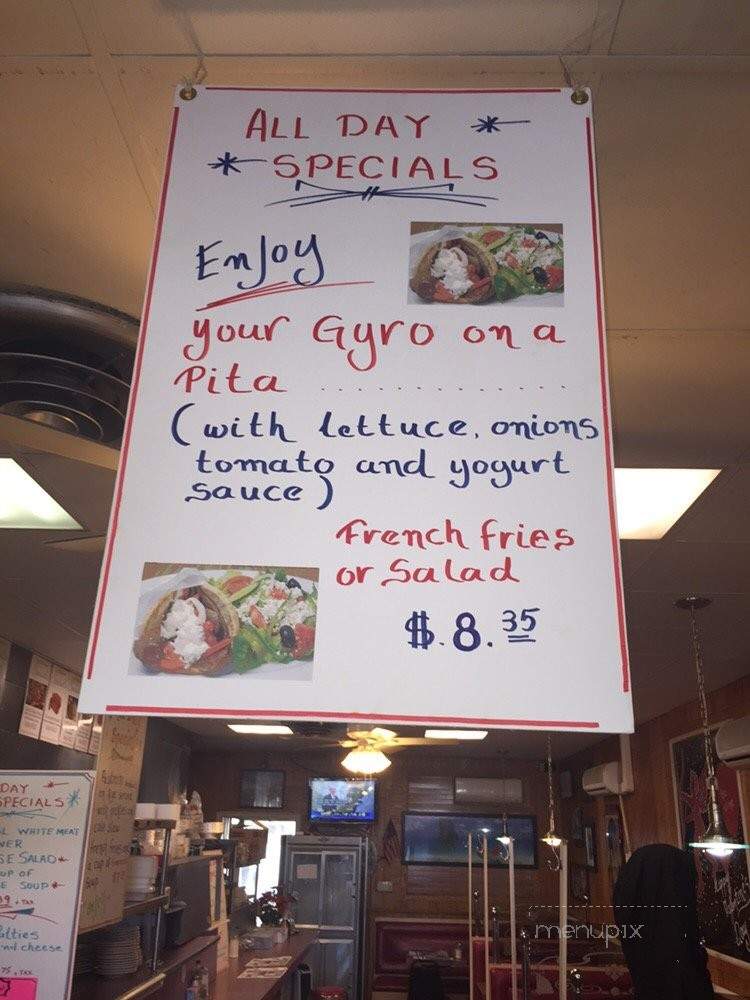 ALL DAY
SPECIALS
Enjoy
your Gyro on a
Pita ..............
(with lettuce, onions
tomato and yogurt
sauce)
French fries
or Salad
$.8.35
DAY
SPECIALS
WHITE MEAT
SE SALAD
UP OF
SOUP
+ TAX
and cheese
menupix